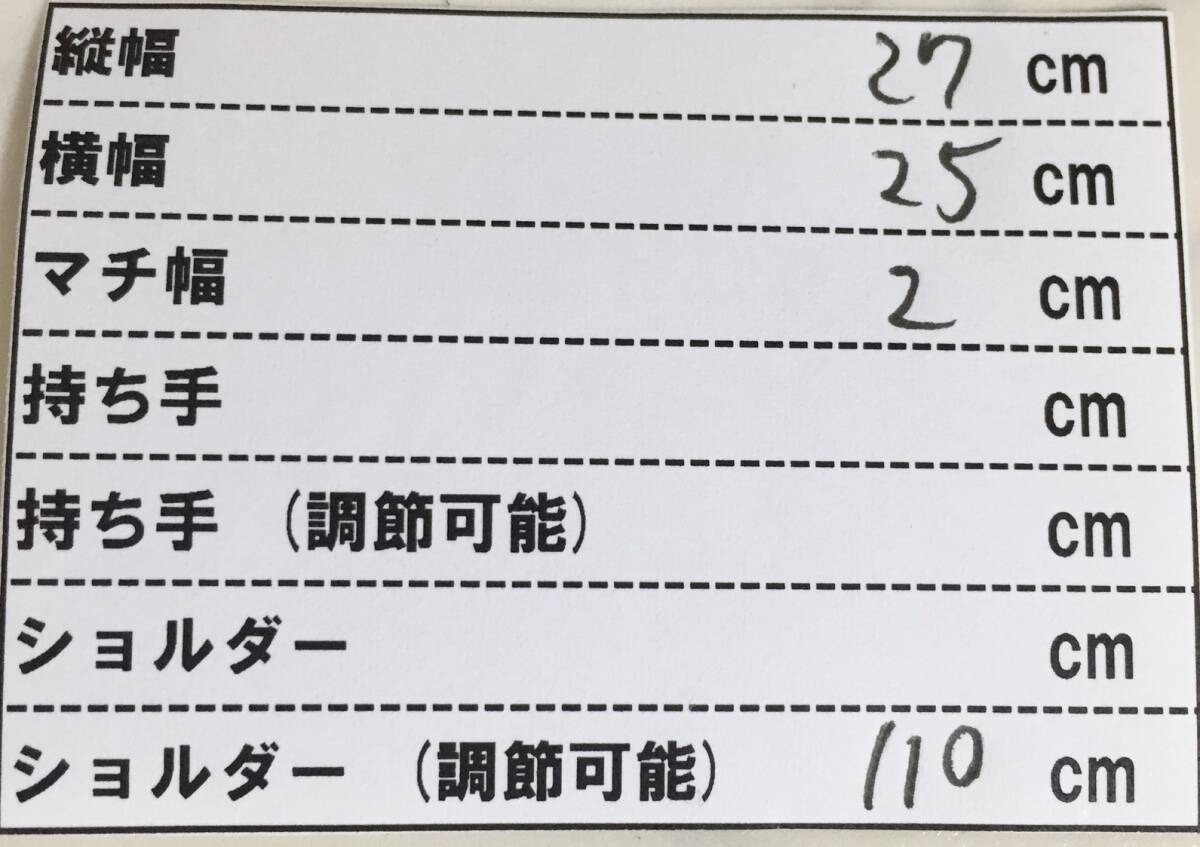 縦幅 27 cm
横幅 25 cm
マチ幅 2 cm
持ち手 cm
持ち手 (調節可能) cm
ショルダー cm
ショルダー (調節可能) 110 cm